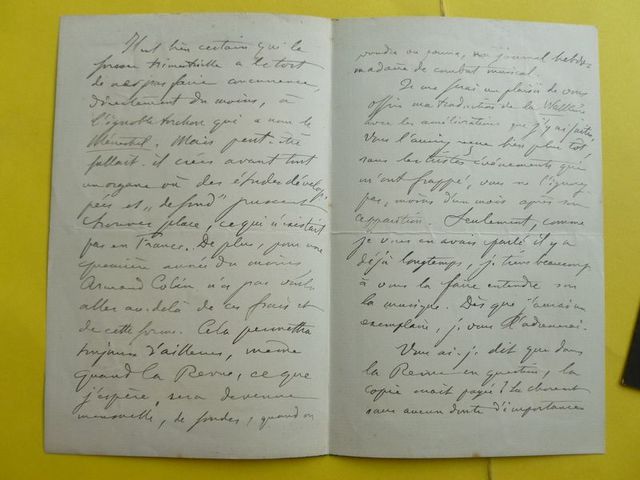 Il est bien certain que la
forme trimestrielle a le tort
de ne pas faire concurrence,
directement du moins, à
l'ignoble torchon qui a nom le
Ménestrel. Mais peut-être
fallait-il créer avant tout
un organe où des études dévelop-
pées et "de fond" pussent
trouver place, ce qui n'existait
pas en France. De plus, pour une
première année du moins,
Armand Colin n'a pas voulu
aller au-delà de ces frais et
de cette forme. Cela permettra
toujours d'ailleurs, même
quand la Revue, ce que
j'espère, sera devenue
mensuelle, de fonder, quand on
voudra ou pourra, un journal hebdo-
madaire de combat musical.
Je me ferai un plaisir de vous
offrir ma traduction de la Walküre
avec les améliorations que j'y ai faites,
Vous l'auriez reçue bien plus tôt
sans les tristes événements qui
m'ont frappé, vous ne l'ignorez
pas, moins d'un mois après son
apparition. Seulement, comme
je vous en avais parlé il y a
déjà longtemps, je tiens beaucoup
à vous la faire entendre sur
la musique. Dès que j'aurai un
exemplaire, je vous l'adresserai.
Vous ai-je dit que dans
la Revue en question, la
copie était payée ? La chose est
sans aucun doute d'importance